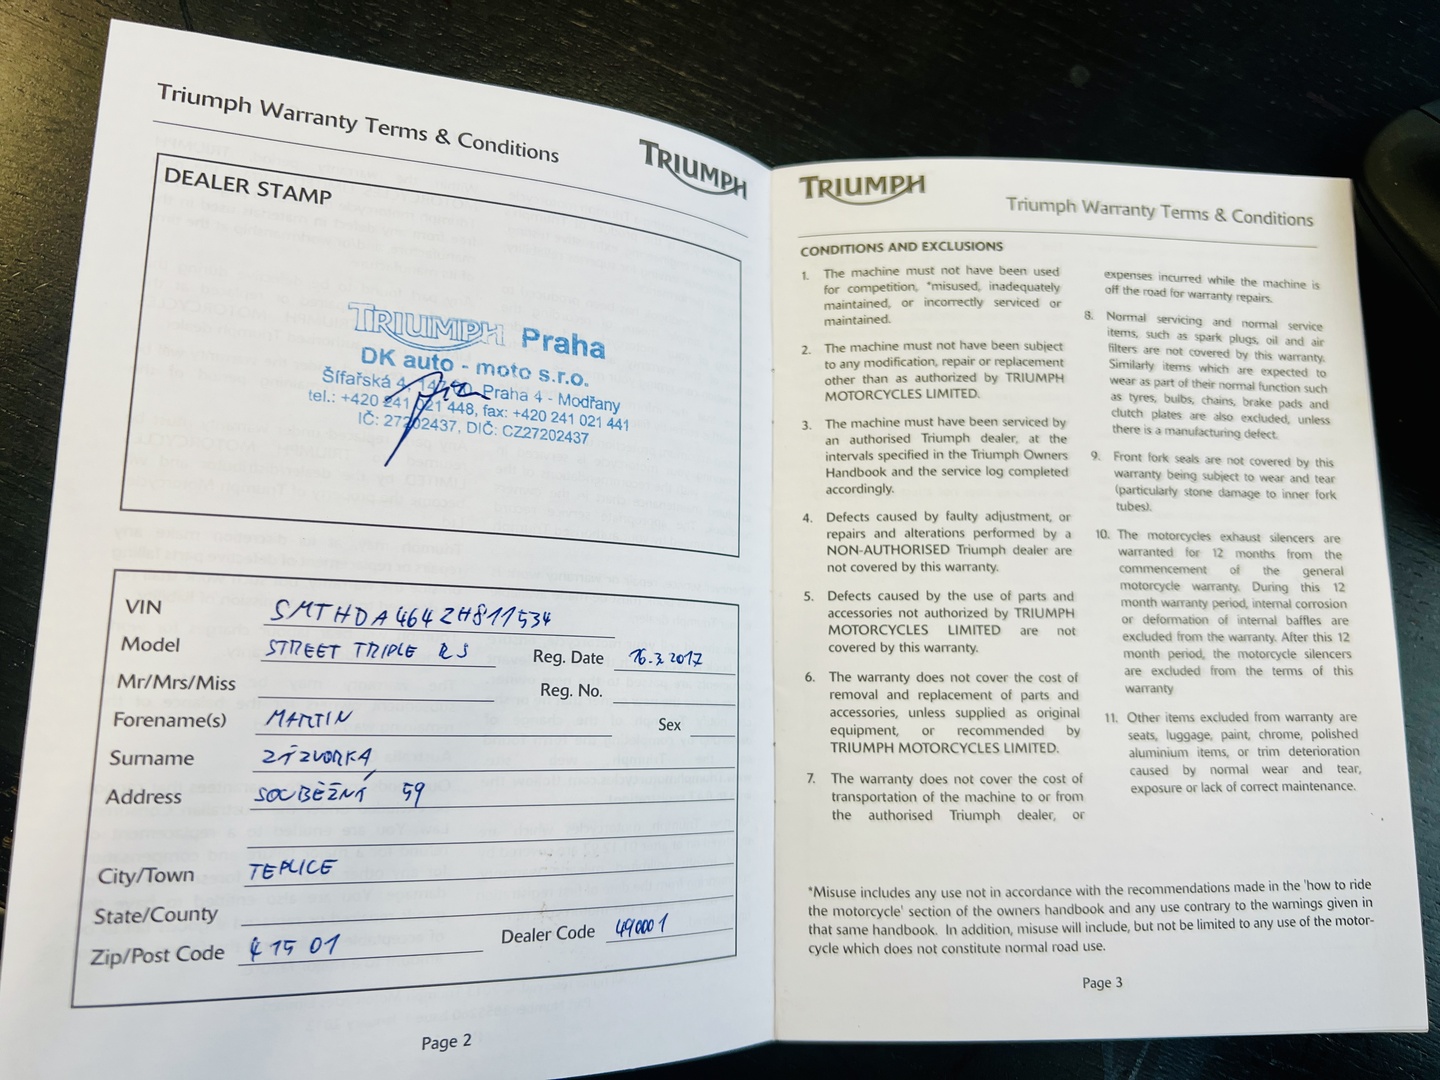 Triumph Warranty Terms & Conditions
TRIUMPH
DEALER STAMP
TRIUMPH Praha
DK auto - moto s.r.o.
Šífařská 4, Praha 4 - Modřany
tel.: +420 241 021 448, fax: +420 241 021 441
IČ: 27202437, DIČ: CZ27202437
VIN SMTHDA464ZH811534
Model STREET TRIPLE RS Reg. Date 16.3.2017
Mr/Mrs/Miss Reg. No.
Forename(s) MARTIN Sex
Surname ZÍZVORKA
Address SOUBĚŽNÁ 59
City/Town TEPLICE
State/County
Zip/Post Code 415 01 Dealer Code 490001
Page 2
TRIUMPH
Triumph Warranty Terms & Conditions
CONDITIONS AND EXCLUSIONS
1. The machine must not have been used
for competition, *misused, inadequately
maintained, or incorrectly serviced or
maintained.
2. The machine must not have been subject
to any modification, repair or replacement
other than as authorized by TRIUMPH
MOTORCYCLES LIMITED.
3. The machine must have been serviced by
an authorised Triumph dealer, at the
intervals specified in the Triumph Owners
Handbook and the service log completed
accordingly.
4. Defects caused by faulty adjustment, or
repairs and alterations performed by a
NON-AUTHORISED Triumph dealer are
not covered by this warranty.
5. Defects caused by the use of parts and
accessories not authorized by TRIUMPH
MOTORCYCLES LIMITED are not
covered by this warranty.
6. The warranty does not cover the cost of
removal and replacement of parts and
accessories, unless supplied as original
equipment, or recommended by
TRIUMPH MOTORCYCLES LIMITED.
7. The warranty does not cover the cost of
transportation of the machine to or from
the authorised Triumph dealer, or
expenses incurred while the machine is
off the road for warranty repairs.
8. Normal servicing and normal service
items, such as spark plugs, oil and air
filters are not covered by this warranty.
Similarly items which are expected to
wear as part of their normal function such
as tyres, bulbs, chains, brake pads and
clutch plates are also excluded, unless
there is a manufacturing defect.
9. Front fork seals are not covered by this
warranty being subject to wear and tear
(particularly stone damage to inner fork
tubes).
10. The motorcycles exhaust silencers are
warranted for 12 months from the
commencement of the general
motorcycle warranty. During this 12
month warranty period, internal corrosion
or deformation of internal baffles are
excluded from the warranty. After this 12
month period, the motorcycle silencers
are excluded from the terms of this
warranty
11. Other items excluded from warranty are
seats, luggage, paint, chrome, polished
aluminium items, or trim deterioration
caused by normal wear and tear,
exposure or lack of correct maintenance.
*Misuse includes any use not in accordance with the recommendations made in the 'how to ride
the motorcycle' section of the owners handbook and any use contrary to the warnings given in
that same handbook. In addition, misuse will include, but not be limited to any use of the motor-
cycle which does not constitute normal road use.
Page 3